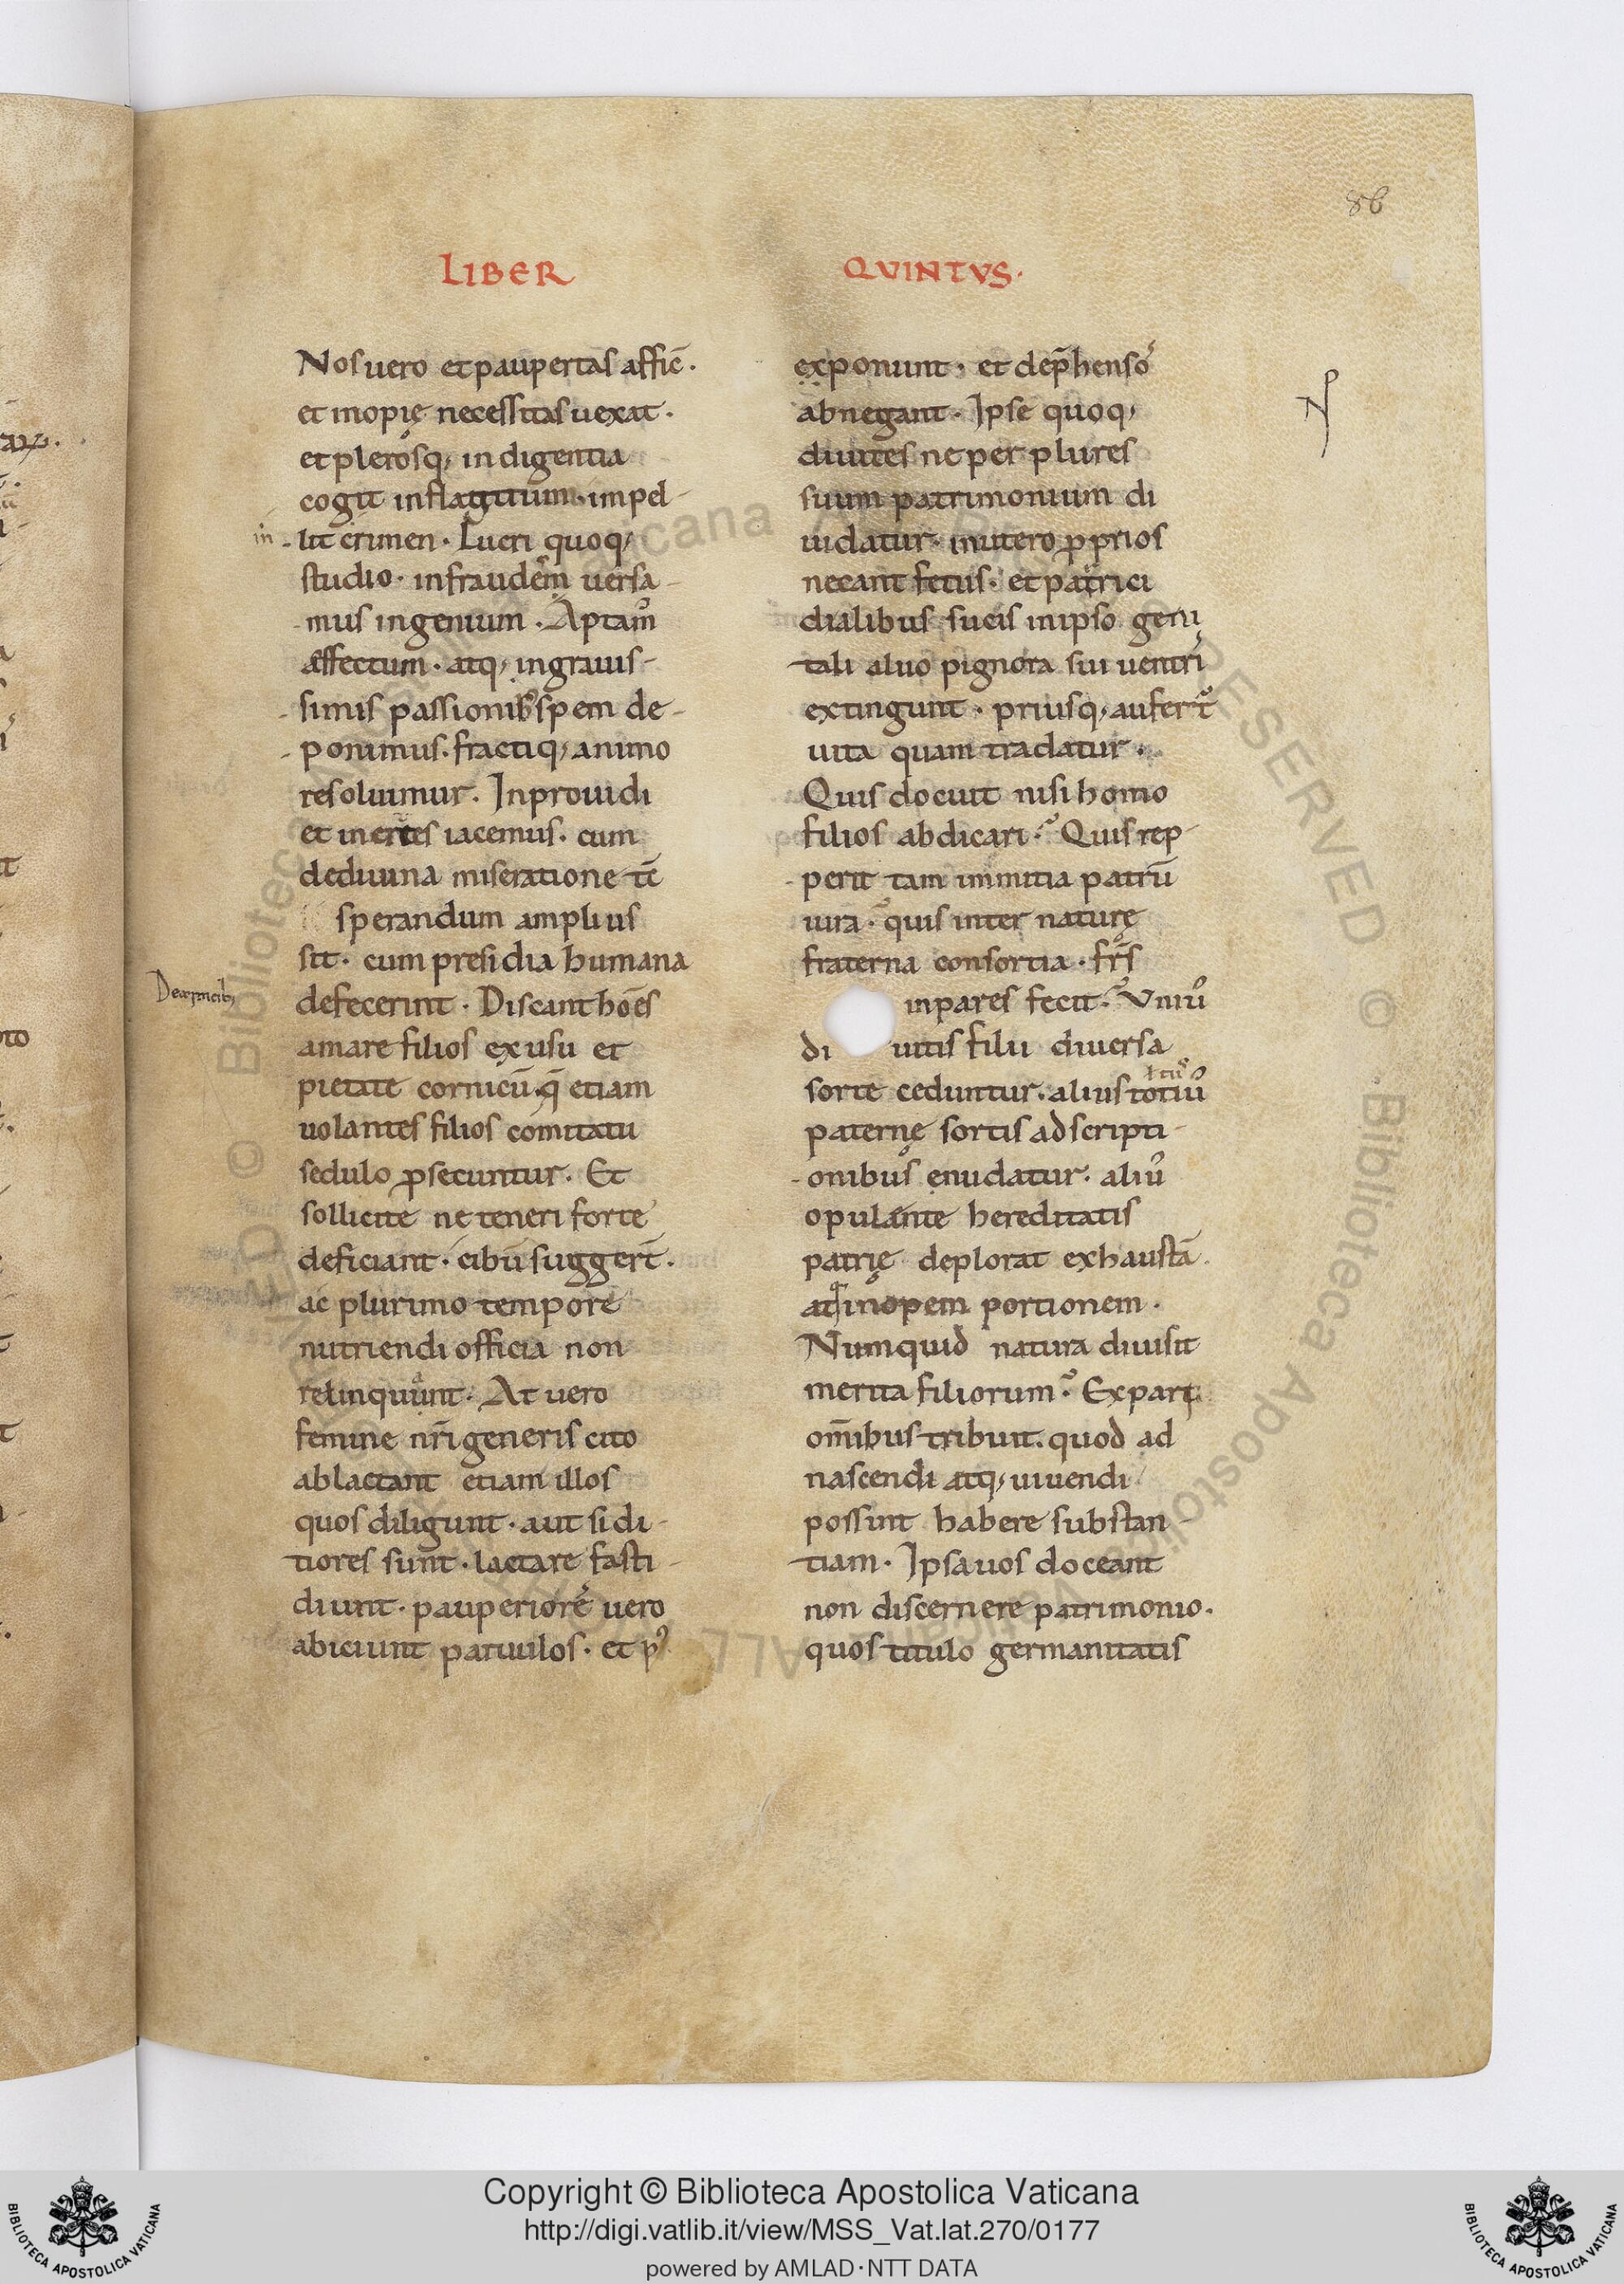 86
LIBER QVINTVS.
Nos uero et paupertas afficit̄.
et inopię necessitas uexat.
et plerosq; indigentia
cogit inflagitium. impel-
lit crimen. Lucri quoq;
studio. infraudem uersa-
mus ingenium. Aptam᷒
affectum. atq; ingrauis-
simis passionib; spem de-
ponimus. fractiq; animo
resoluimur. Inprouidi
et inertes iacemus. cum
dediuina miseratione tc̄
sperandum amplius
sit. cum presidia humana
defecerint. Discant hoēs
amare filios ex usu et
pietate cornicū. q̄ etiam
uolantes filios comitatu
sedulo ꝓsecuntur. Et
sollicite ne teneri forte
deficiant. cibū suggert̄.
ac plurimo tempore
nutriendi officia non
relinquunt. At uero
femine nr̄i generis cito
ablactant etiam illos
quos diligunt. aut si di-
tiores sunt. lactare fasti-
diunt. pauperiores uero
abiciunt paruulos. et
exponunt. et dep̄hensos
abnegant. Ipse quoq;
diuites ne per plures
suum patrimonium di
uidatur. inutero ꝓprios
necant fetus. et patrici
dialibus sucis inipso geni
tali aluo pignora sui uentris
extingunt. priusq; aufert᷒
uita quam tradatur.
Quis docuit nisi homo
filios abdicari? Quis rep-
perit tam immitia patrū
iura? quis inter naturę
fraterna consortia. fr̄s
inpares fecit? Vniu᷒
diuitis filii diuersa
sorte ceduntur. alius totiu᷒
paternę sortis adscripti-
onibus enudatur. aliu᷒
opulente hereditatis
patrię deplorat exhaustā
atq; inopem portionem.
Numquid natura diuisit
merita filiorum? Ex parte
om̄ibus tribuit. quod ad
nascendi atq; uiuendi
possint habere substan-
tiam. Ipsa uos doceant
non discernere patrimonio.
quos titulo germanitatis
Copyright © Biblioteca Apostolica Vaticana
http://digi.vatlib.it/view/MSS_Vat.lat.270/0177
powered by AMLAD·NTT DATA
BIBLIOTECA APOSTOLICA VATICANA
BIBLIOTECA APOSTOLICA VATICANA